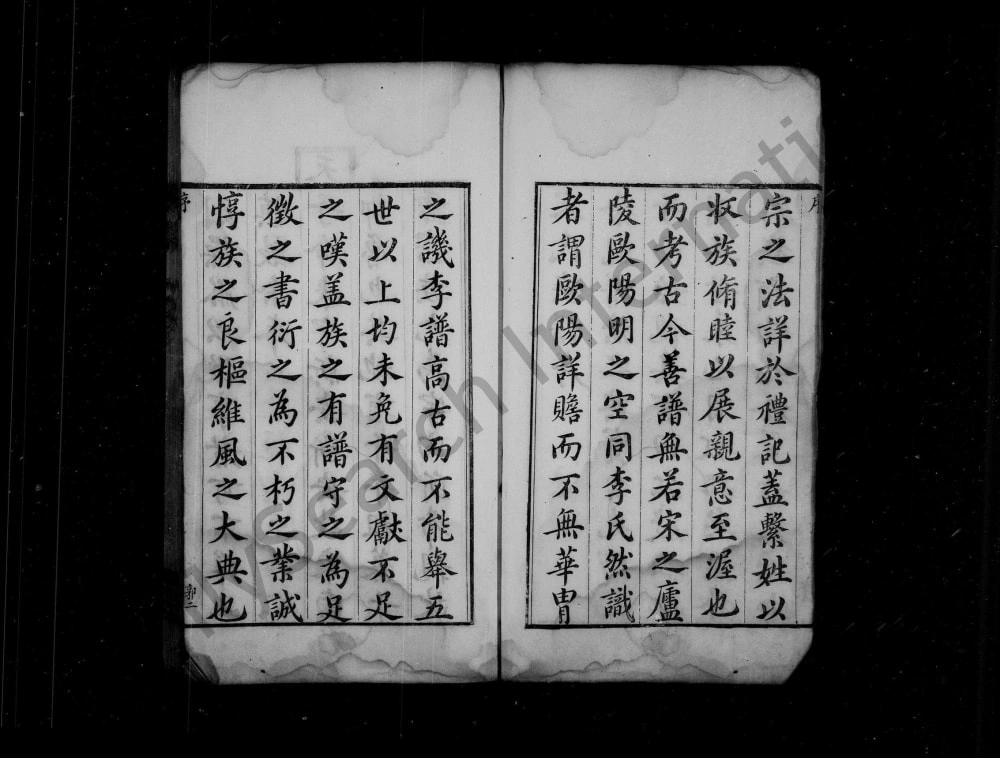 宗之法詳於禮記蓋繫姓以
收族脩睦以展親意至渥也
而考古今善譜無若宋之廬
陵歐陽明之空同李氏然識
者謂歐陽詳贍而不無華冑
之譏李譜高古而不能舉五
世以上均未免有文獻不足
之嘆盖族之有譜守之為足
徵之書衍之為不朽之業誠
惇族之良樞維風之大典也
序